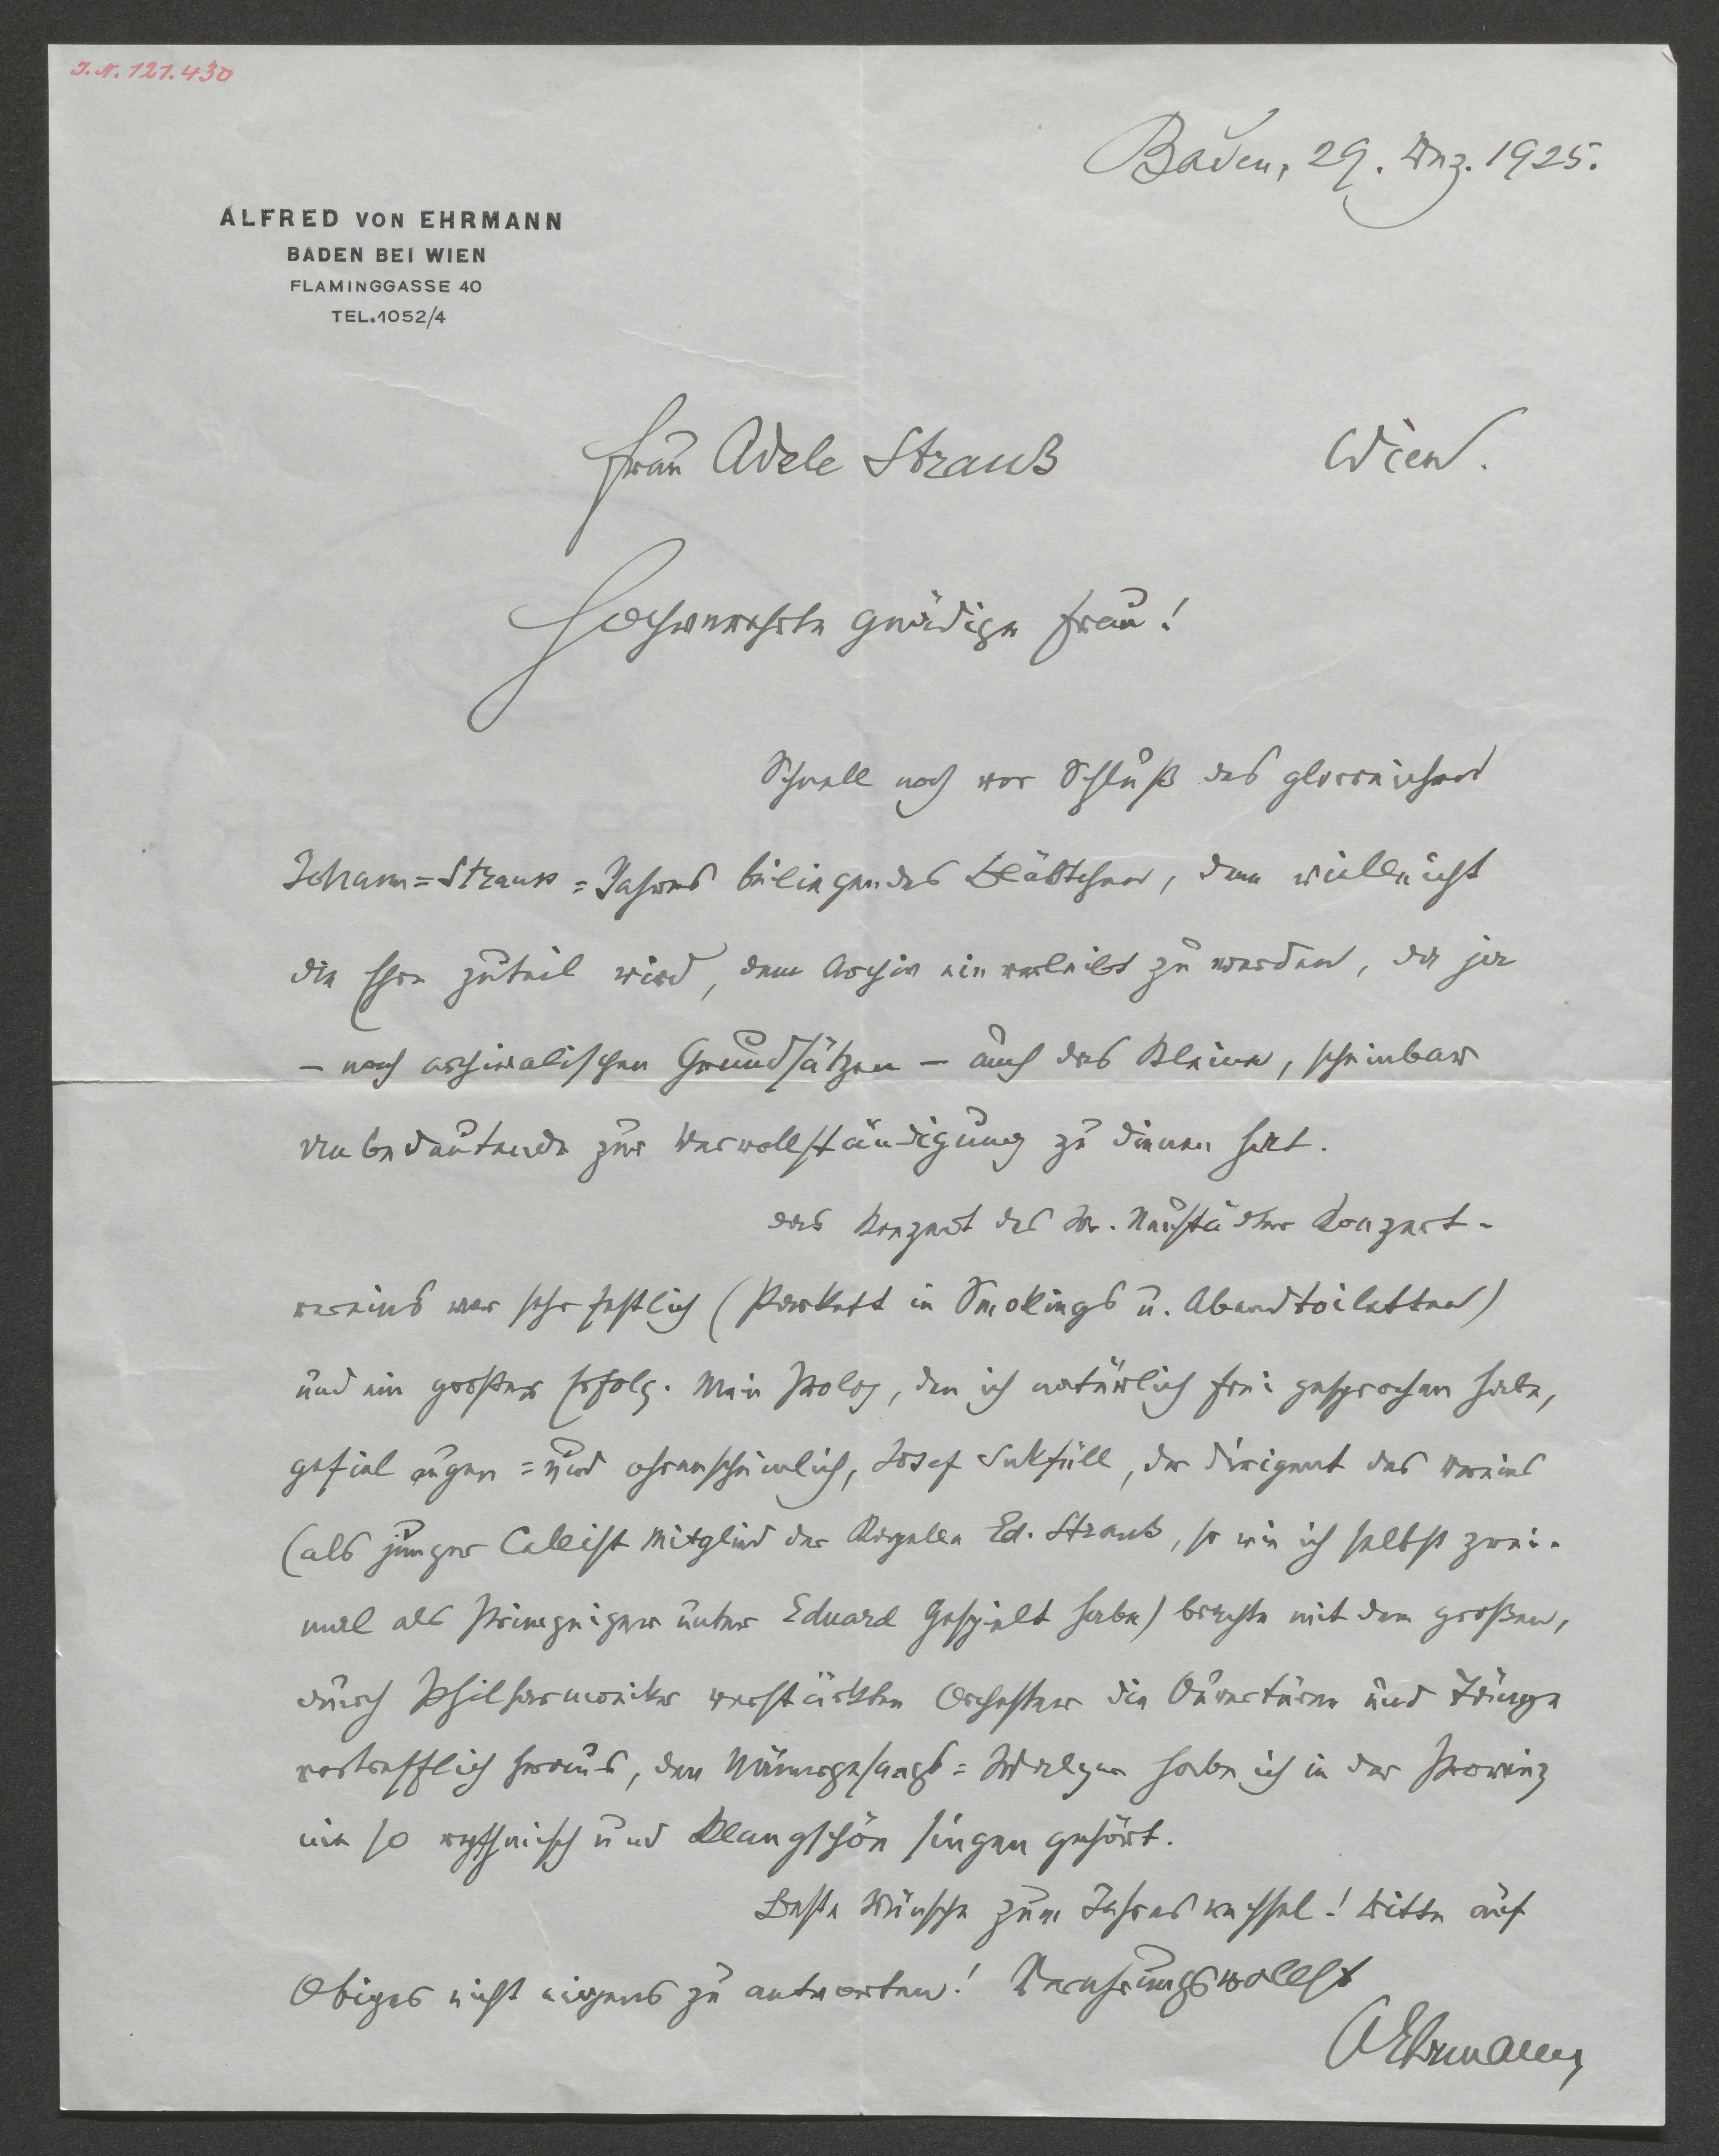 I.N. 121.430
Baden, 29. Dez. 1925.
ALFRED VON EHRMANN
BADEN BEI WIEN
FLAMINGGASSE 40
TEL. 1052/4
Frau Adele Strauß Wien.
Hochverehrte gnädige Frau!
Schnell noch vor Schluß des glorreichen
Johann=Strauss=Jahres beiliegendes Blättchen, dem vielleicht
die Ehre zuteil wird, dem Archiv einverleibt zu werden, da ja
– nach archivalischen Grundsätzen – auch das Kleine, scheinbar
Unbedeutende zur Vervollständigung zu dienen hat.
Das Konzert des Wr. Neustädter Konzert-
vereins war sehr festlich (Parkett in Smokings u. Abendtoiletten)
und ein großer Erfolg. Mein Prolog, den ich natürlich frei gesprochen habe,
gefiel augen=und ohrenscheinlich, Josef Sukfüll, der Dirigent des Vereins
(als junger Cellist Mitglied der Kapelle Ed. Strauß, so wie ich selbst zwei-
mal als Primgeiger unter Eduard gespielt habe) brachte mit dem großen,
durch Philharmoniker verstärkten Orchester die Ouvertüren und Tänze
vortrefflich heraus, den Männergesangs=Walzer habe ich in der Provinz
nie so rythmisch und klangschön singen gehört.
Beste Wünsche zum Jahreswechsel! Bitte auf
Obiges nicht eigens zu antworten! Verehrungsvollst
AEhrmann